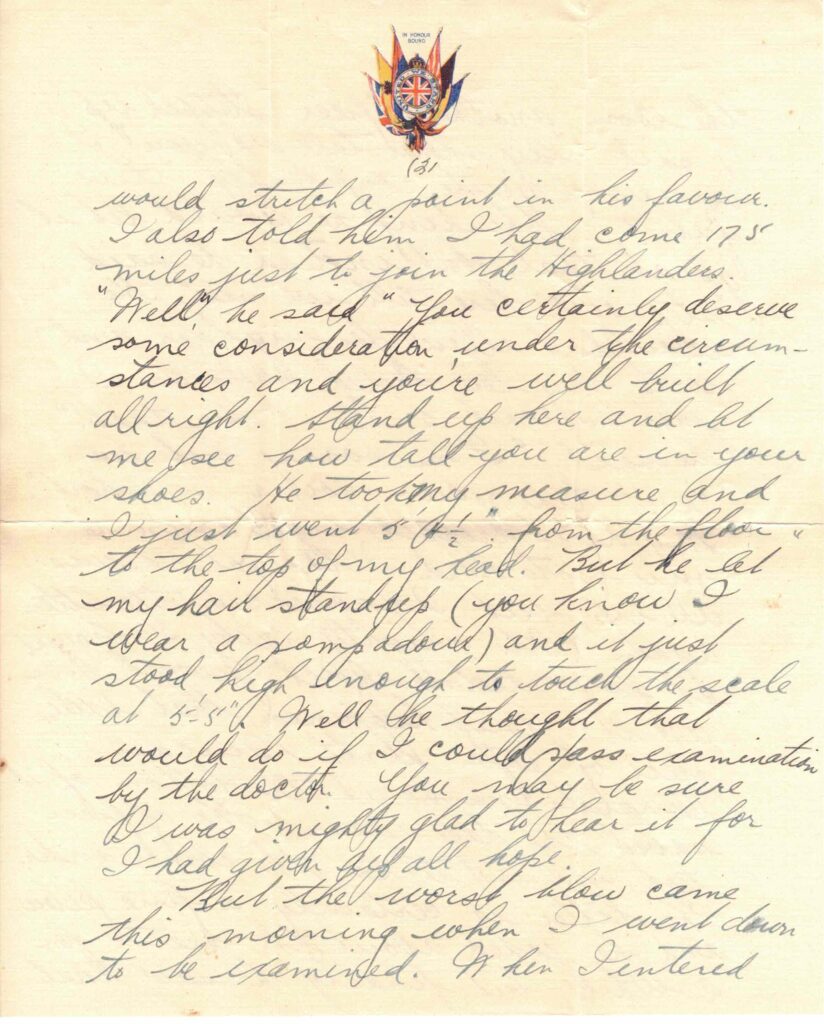 IN HONOUR
BOUND
(2)
would stretch a point in his favour.
I also told him I had come 175
miles just to join the Highlanders.
"Well", he said "You certainly deserve
some consideration under the circum-
stances and you're well built
all right. Stand up here and let
me see how tall you are in your
shoes. He took my measure and
I just went 5' 4 1/2" from the floor
to the top of my head. But he let
my hair stand up (you know I
wear a pompadour) and it just
stood high enough to touch the scale
at 5'-5". Well he thought that
would do if I could pass examination
by the doctor. You may be sure
I was mighty glad to hear it for
I had given up all hope.
But the worst blow came
this morning when I went down
to be examined. When I entered